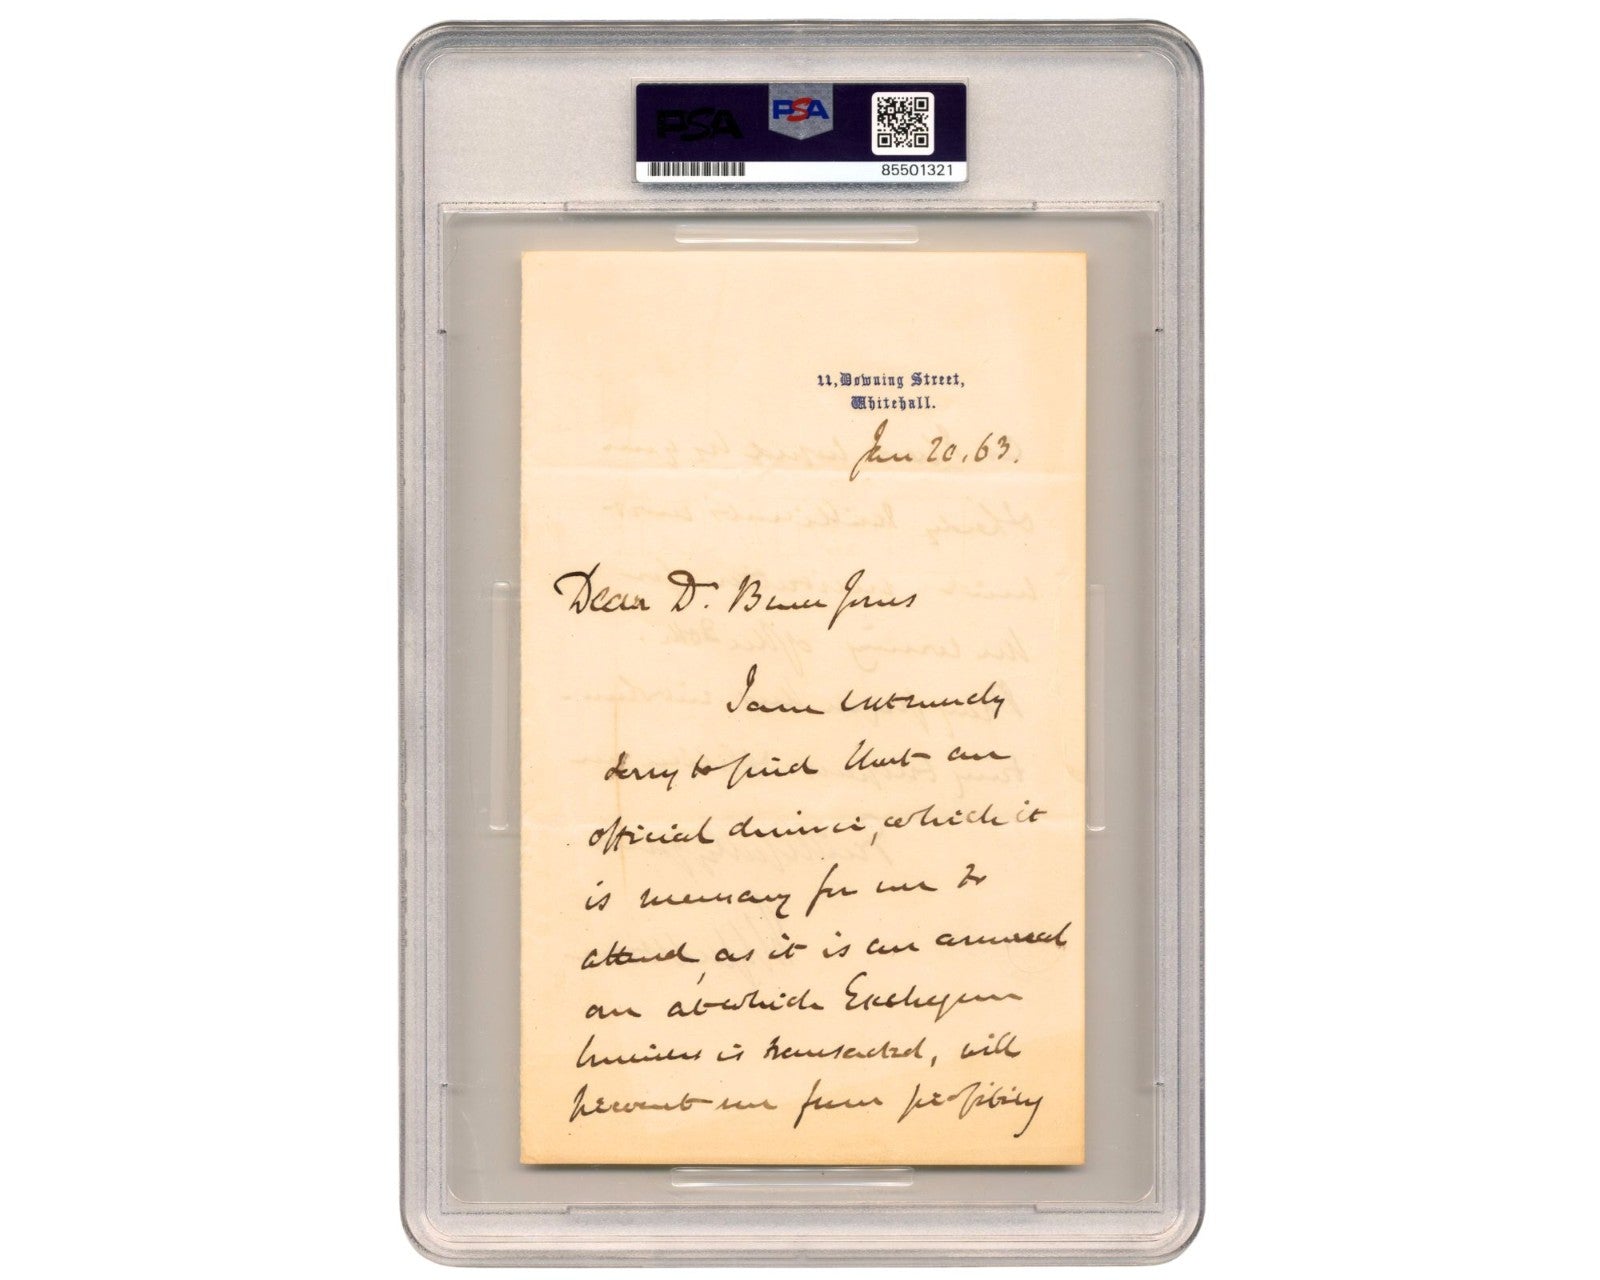 PSA
PSA
85501321
11, Downing Street,
Whitehall.
Jan 20. 63.
Dear Dr. Bence Jones
I am extremely
sorry to find that an
official dinner, which it
is necessary for me to
attend, as it is an annual
one at which Exchequer
business is transacted, will
prevent me from profiting